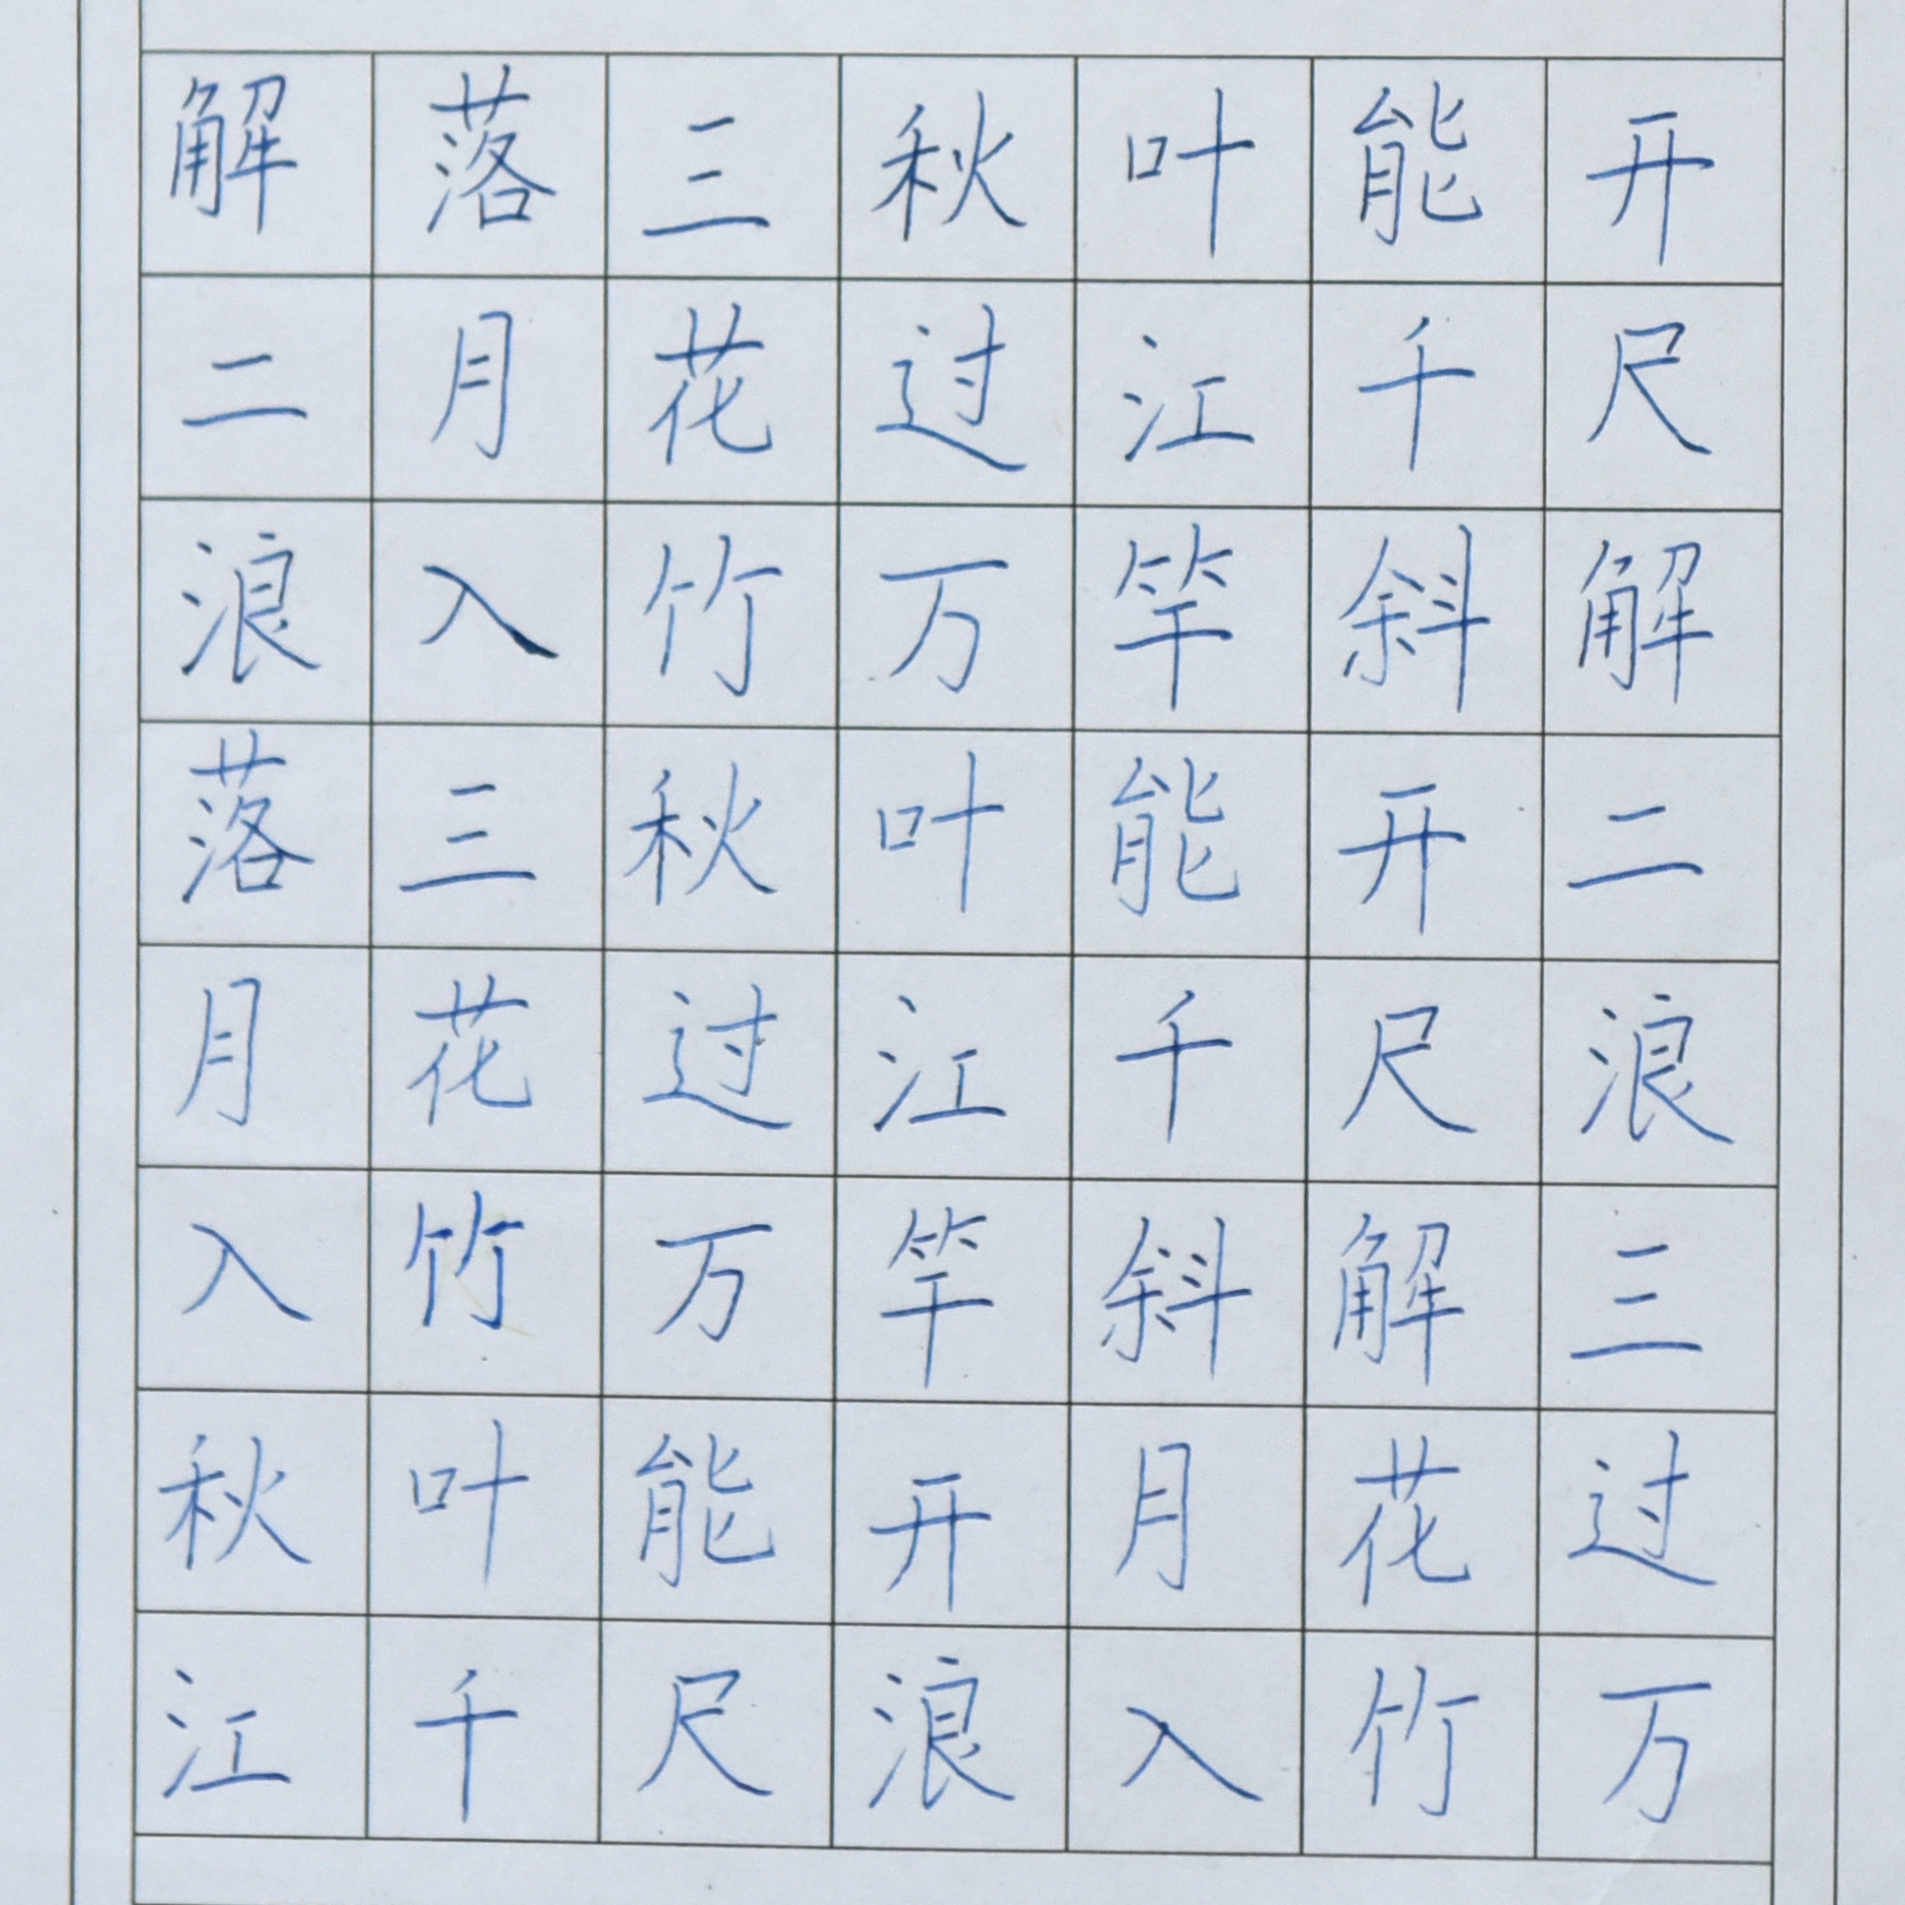 解落三秋叶能开
二月花过江千尺
浪入竹万竿斜解
落三秋叶能开二
月花过江千尺浪
入竹万竿斜解三
秋叶能开月花过
江千尺浪入竹万